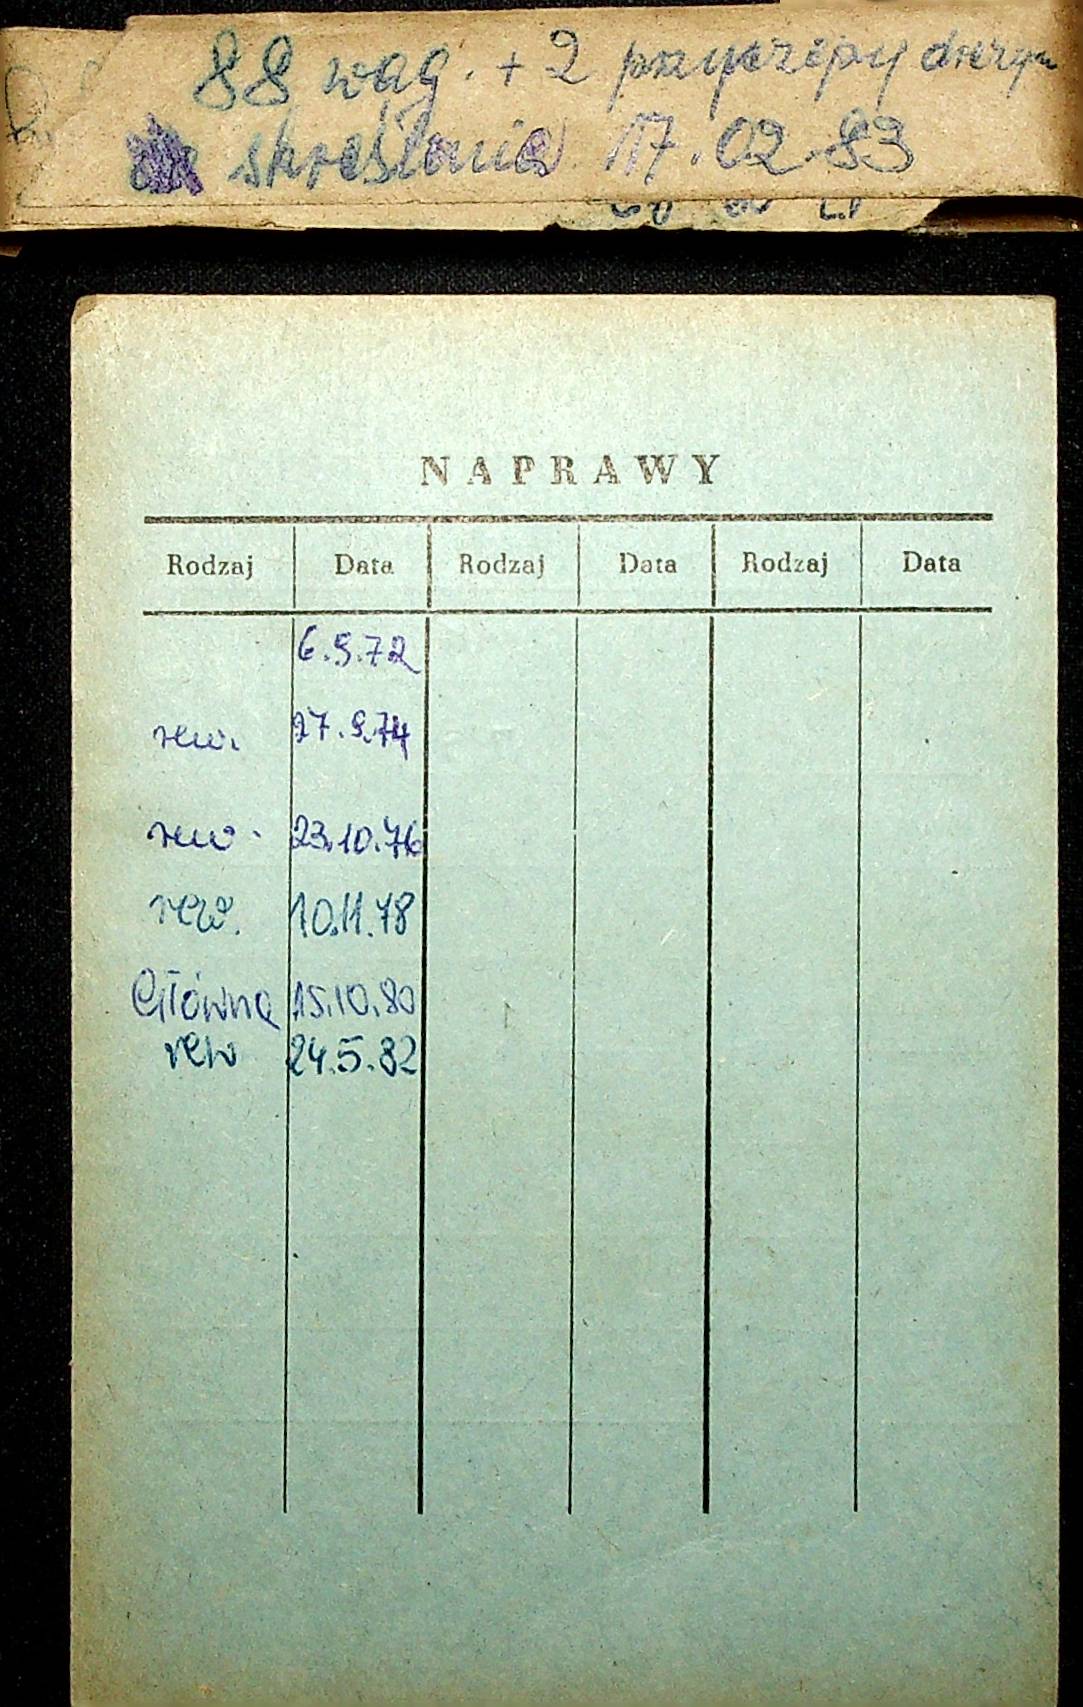 88 wag. + 2 przyczepy drezyn
skreślenie 17.02.83
NAPRAWY
Rodzaj Data Rodzaj Data Rodzaj Data
6.9.72
rew. 27.9.74
rew. 23.10.76
rew. 10.11.78
Główna 15.10.80
rew 24.5.82